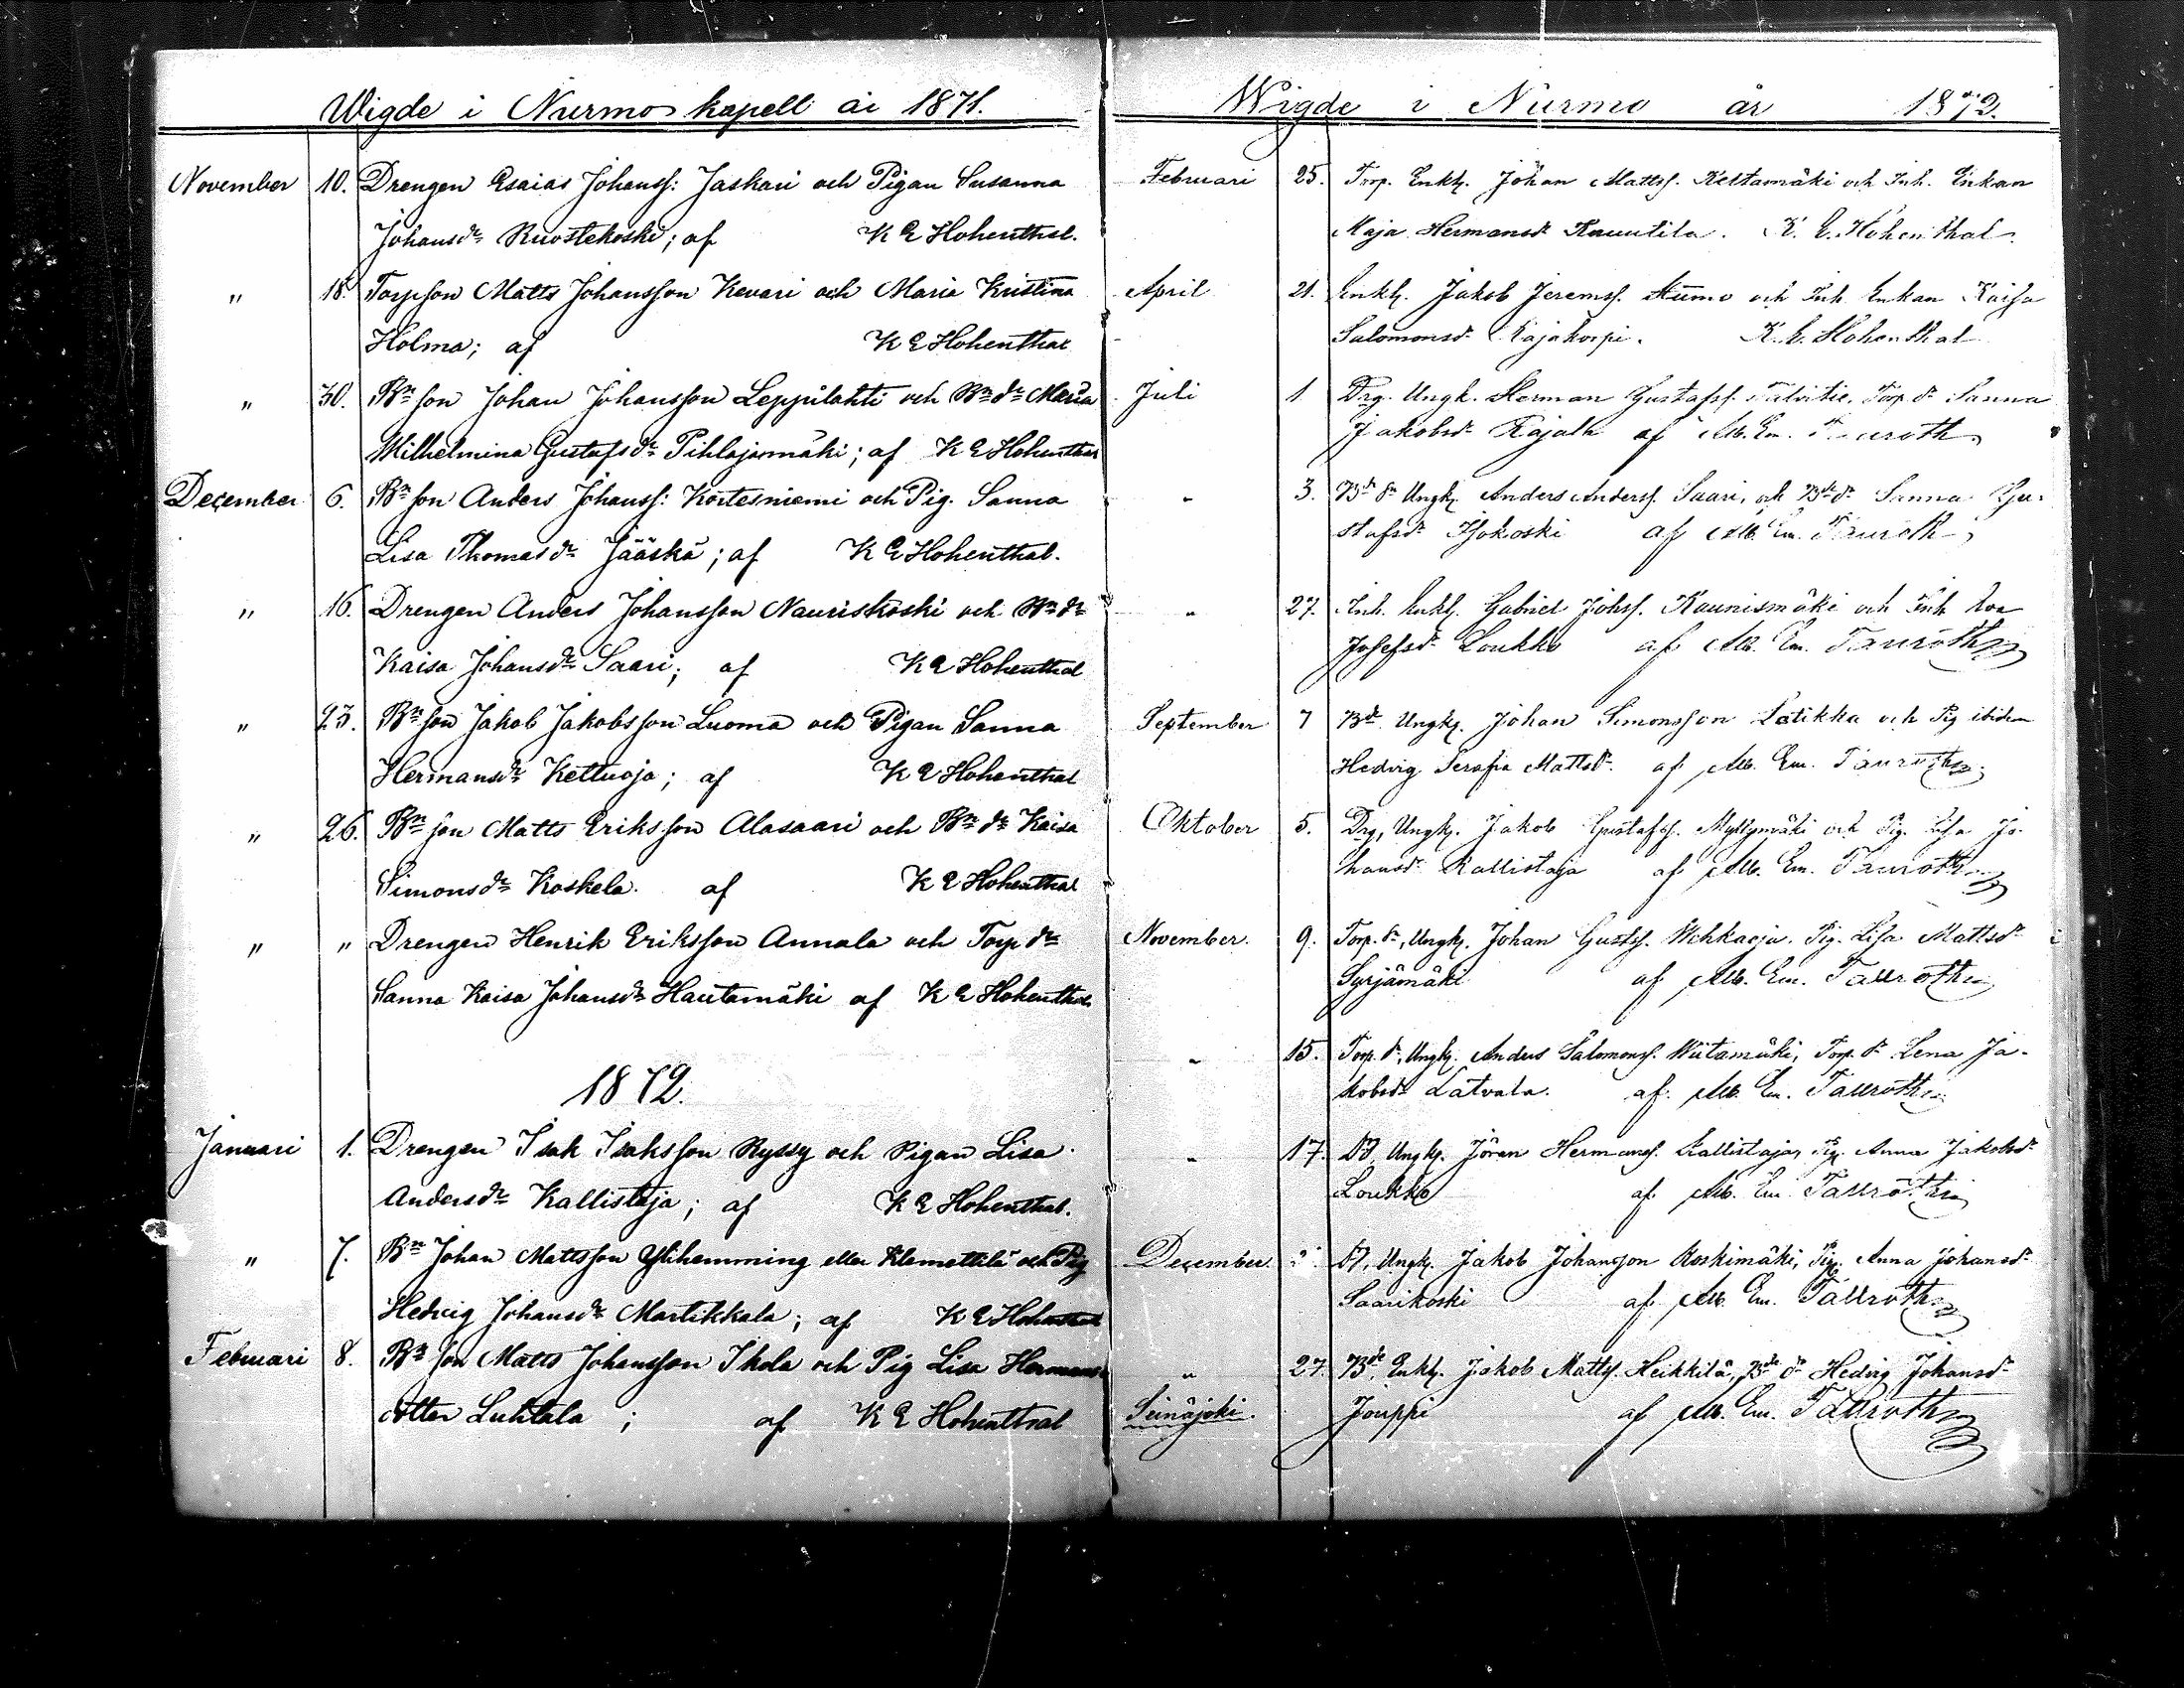 Wigde i Nurmo kapell år 1871.
November 10. Drengen Esaias Johanss: Jaskari och Pigan Susanna
Johansdr Ruostekoski; af K E Hohenthal.
" 18. Torpson Matts Johansson Kevari och Maria Kristina
Holma; af K E Hohenthal
" 30. Bn son Johan Johansson Leppilahti och Bn dr Maria
Wilhelmina Gustafsdr Pihlajamäki; af K E Hohenthal
December 6. Bn son Anders Johanss: Kortesniemi och Pig. Sanna
Lisa Thomasdr Jääskä; af K E Hohenthal.
" 16. Drengen Anders Johansson Nauriskoski och Bn dr
Kaisa Johansdr Saari; af K E Hohenthal
" 23. Bn son Jakob Jakobsson Luoma och Pigan Sanna
Hermansdr Kettuoja; af K E Hohenthal
" 26. Bn son Matts Eriksson Alasaari och Bn dr Kaisa
Simonsdr Koskela. af K E Hohenthal
" " Drengen Henrik Eriksson Annala och Torp dr
Sanna Kaisa Johansdr Hautamäki af K E Hohenthal
1872.
Januari 1. Drengen Isak Isaksson Ryssy och Pigan Lisa
Andersdr Kallistaja; af K E Hohenthal.
" 7. Bn Johan Mattsson Ylihemming eller Klemettilä och Pig
Hedvig Johansdr Martikkala; af K E Hohenthal
Februari 8. Bn son Matts Johansson Ikola och Pig Lisa Hermans
dotter Luhtala; af K E Hohenthal
Wigde i Nurmo år 1872.
Februari 25. Torp. Enkl. Johan Mattss. Keltamäki och Inh. Enkan
Maja Hermansdr Rauutila. K. E. Hohenthal.
April 21. Enkl. Jakob Jeremss. och Inh. Enkan Kaisa
Salomonsdr Rajakorpi. K. E. Hohenthal
Juli 1 Drg. Ungk. Herman Gustafss. Talvitie, Torp. dr Sanna
Jakobsdr Rajala af Alb. Em. Tauroth
" 3. Bd Sn Ungk. Anders Anderss. Saari, och Bde dr Sanna Gu-
stafsdr Isokoski af Alb. Em. Tauroth
" 27. Inh. Enkl. Gabriel Johss. Kaunismäki och Inh Eva
Josefsdr Loukko af Alb. Em. Tauroth
September 7 Bde Ungk. Johan Simonsson Latikka och Pig ibidem
Hedvig Serafia Mattsdr. af Alb. Em. Tauroth
Oktober 5. Drg, Ungk. Jakob Gustafss. Myllymäki och Pig. Lisa Jo-
hansdr Kallistaja af Alb. Em. Tauroth
November. 9. Torp. Sn, Ungk. Johan Gustss. Wehkaoja. Pig. Lisa Mattsdr
Syrjämäki af Alb. Em. Tauroth
" 15. Torp. S., Ungk. Anders Salomonss. Wiitamäki, Torp. dr Lena Ja-
kobsdr Latvala. af Alb. Em. Tauroth
" 17. Ungk. Jöran Hermanss. Kallistaja, Pig. Anna Jakobsdr
Loukko af Alb. Em. Tauroth
December Ungk. Jakob Johansson Koskimäki, Pig. Anna Johansdr
Saarikoski af Alb. Em. Tauroth
" 27. Bde, Enkl. Jakob Mattss. Heikkilä, Bde dr Hedvig Johansdr
Seinäjoki. Jouppi af Alb. Em. Tauroth